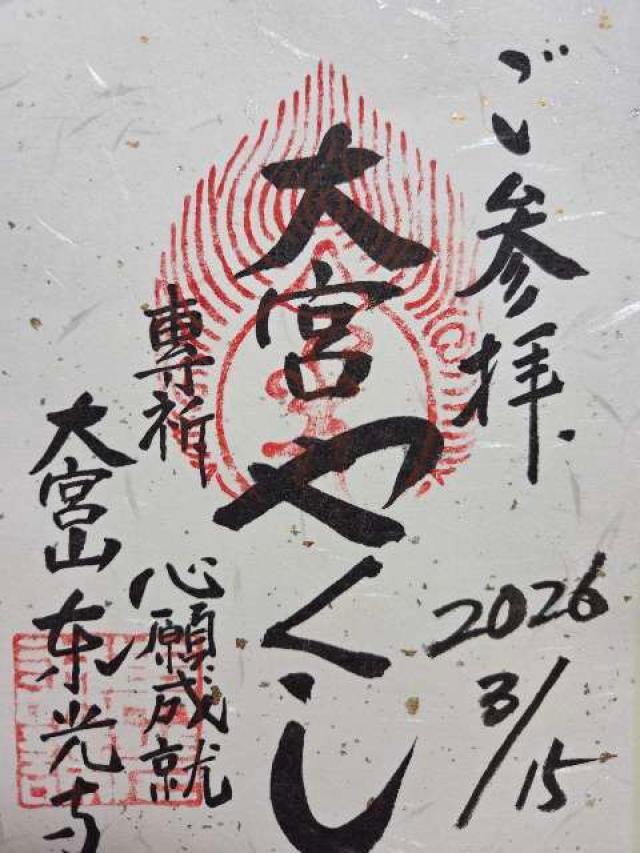 ご参拝
2026
3/15
大宮やくし
専祈
心願成就
大宮山東光寺